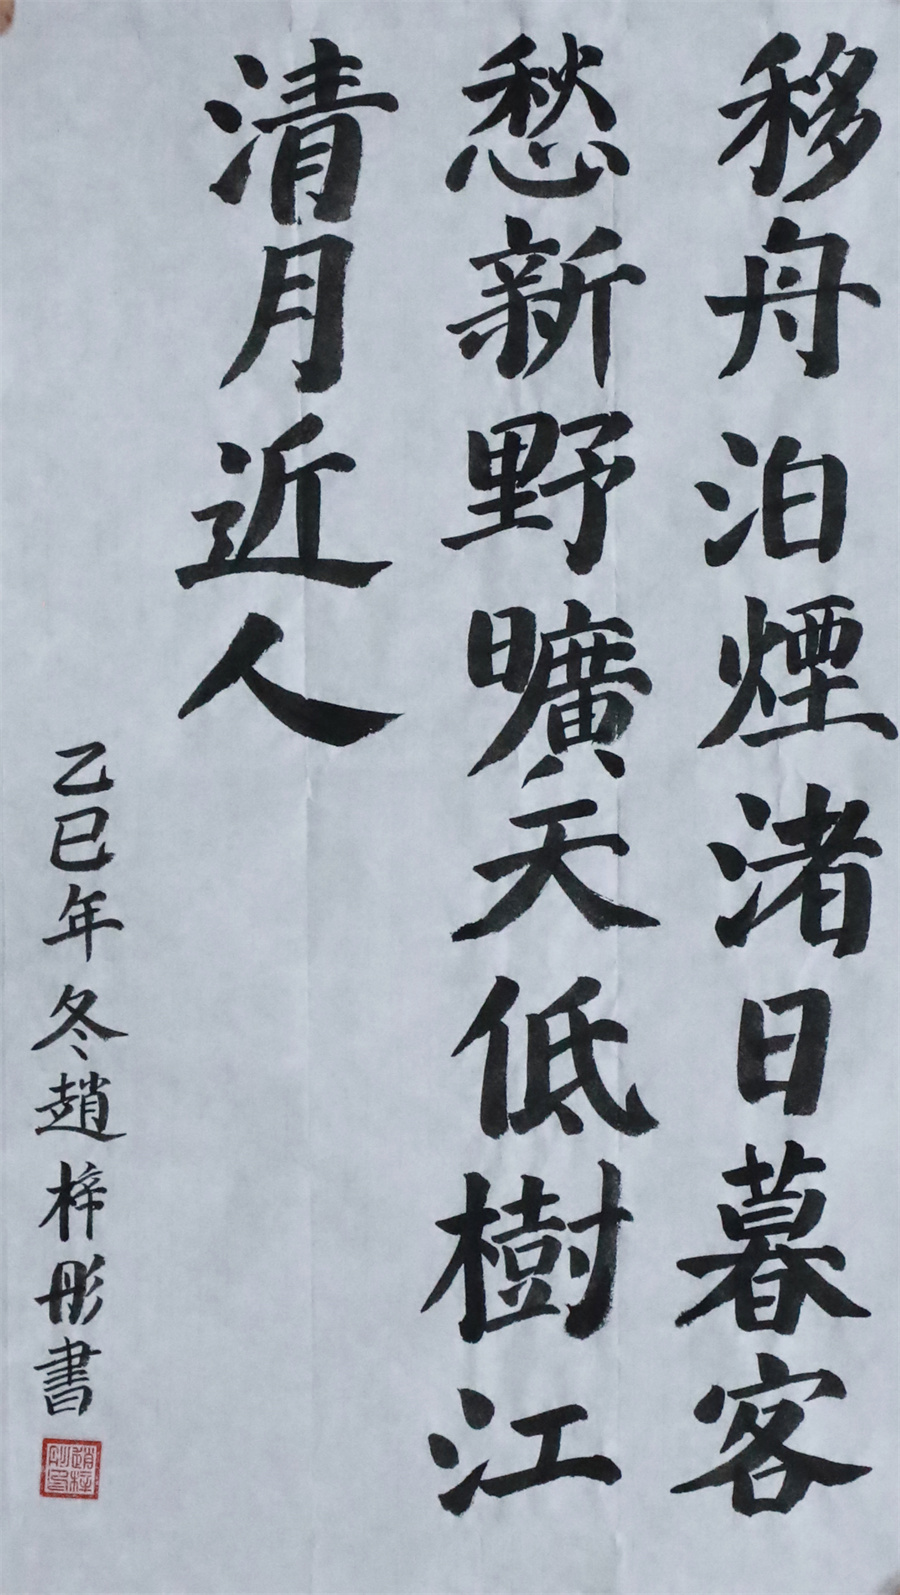 移舟泊煙渚日暮客
愁新野曠天低樹江
清月近人
乙巳年冬趙梓彤書
趙梓彤印